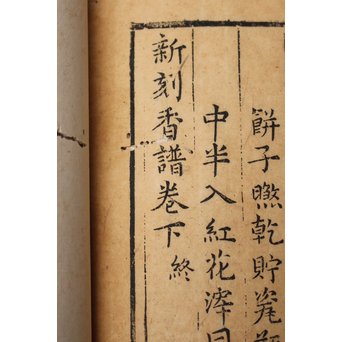 餅子㬠乾貯甆
中半入紅花滓同
新刻香譜卷下終